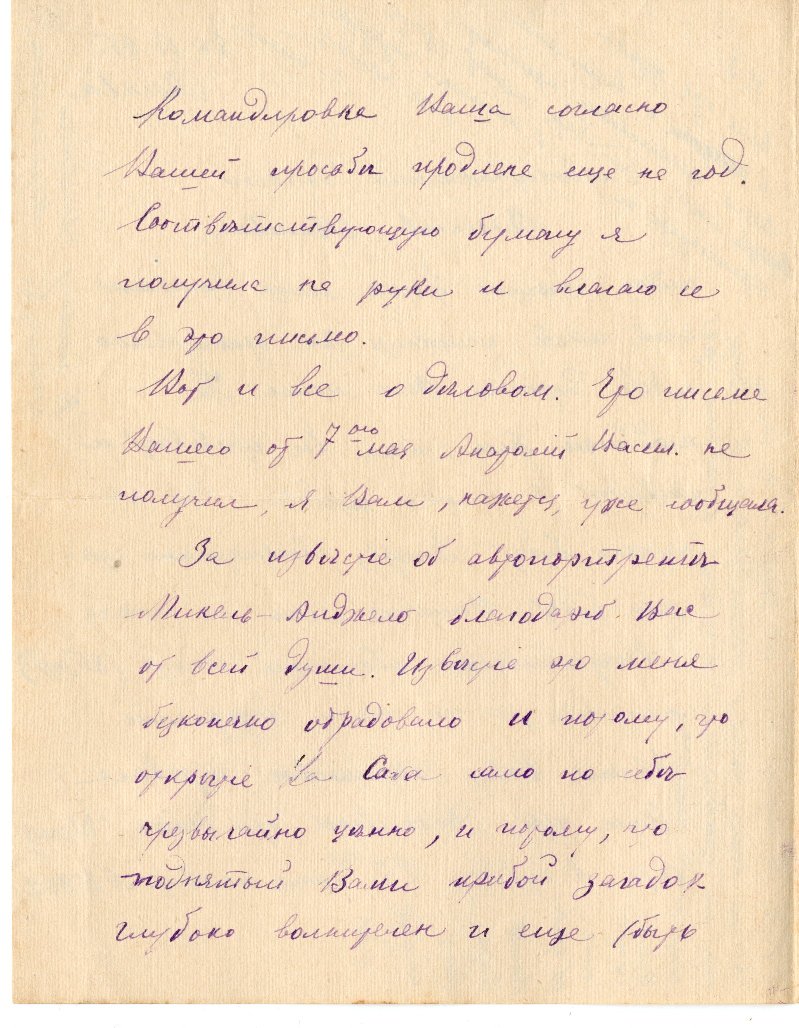 Командировка Ваша согласно
Вашей просьбы продлена еще на год.
Соотвѣтствующую бумагу я
получила на руки и влагаю ее
в это письмо.
Вот и все о дѣловом. Что письма
Вашего от 7ого мая Анатолий Васил. не
получил, я Вам, кажется, уже сообщала.
За извѣстіе об автопортретѣ
Микель-Анджело благодарю Вас
от всей души. Извѣстіе это меня
безконечно обрадовало и потому, что
открытіе La Cava само по себѣ
чрезвычайно цѣнно, и потому, что
поднятый Вами прибой загадок
глубоко волнителен и еще (быть